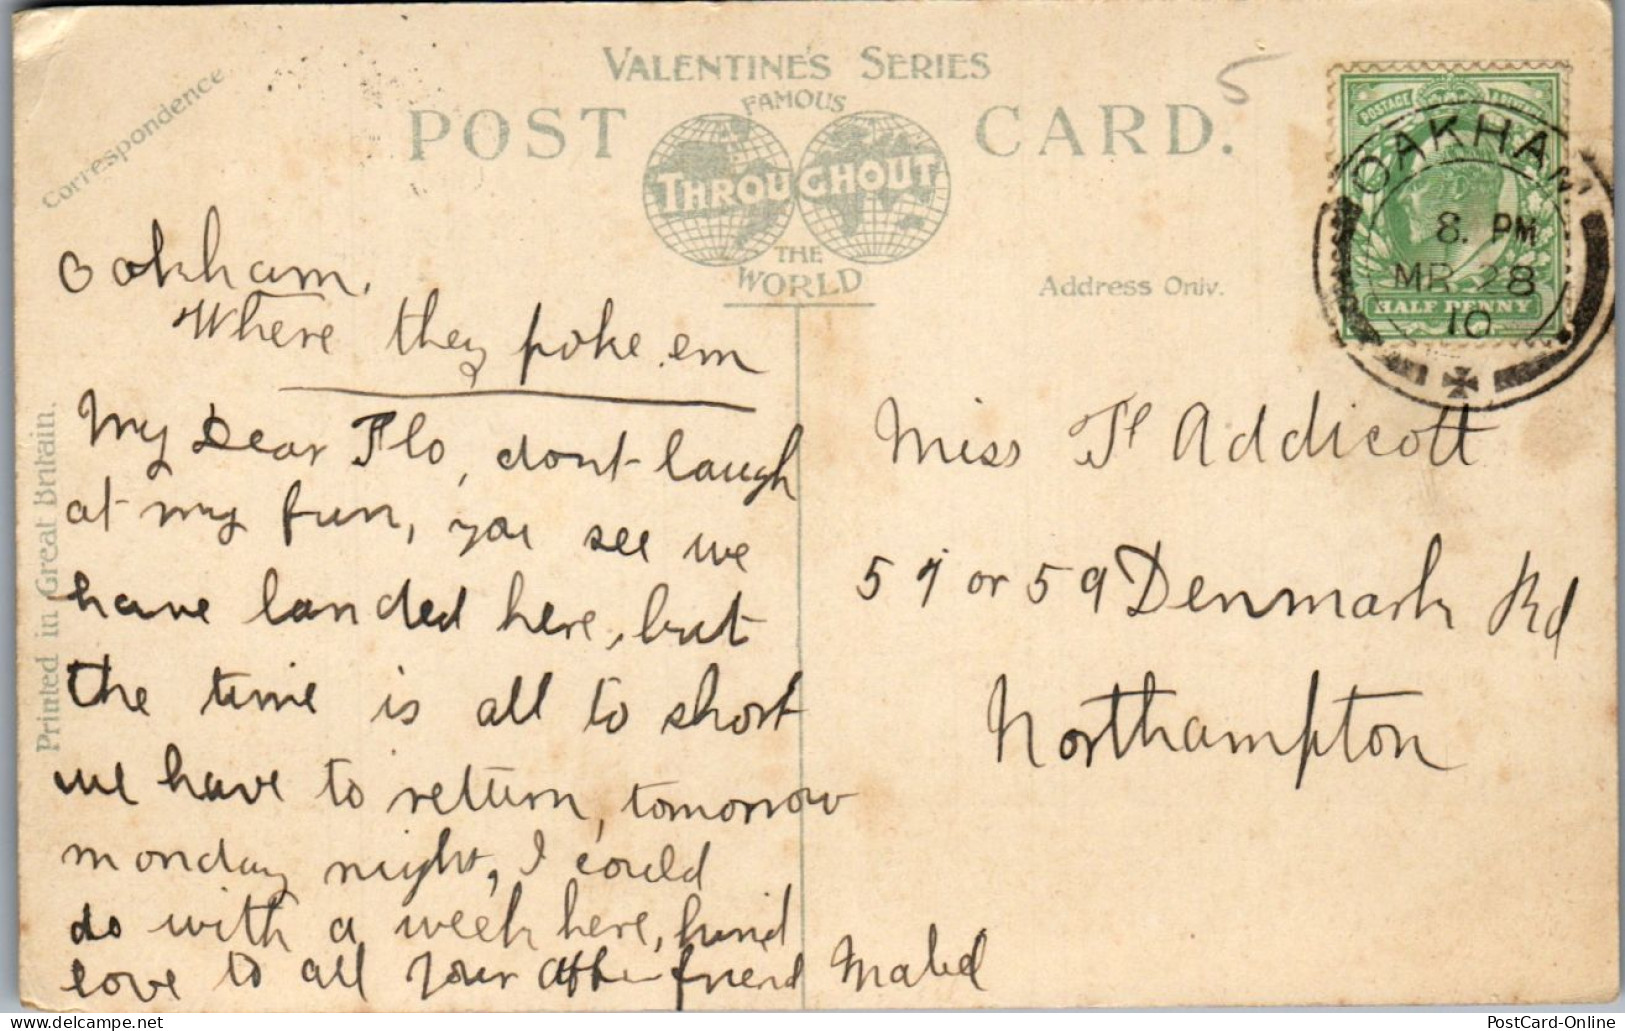 Correspondence
VALENTINE'S SERIES
FAMOUS
POST CARD.
THROUGHOUT
THE
WORLD
Address Only.
Printed in Great Britain.
POSTAGE
OAKHAM
8. PM
MR 28
10
HALF PENNY
5
Oakham.
Where they poke em
My Dear Flo, dont laugh
at my fun, you see we
have landed here, but
the time is all to short
we have to return, tomorrow
monday night, I could
do with a week here, kind
love to all your friend Mabel
Miss Fl Addicott
57 or 59 Denmark Rd
Northampton
PostCard-Online